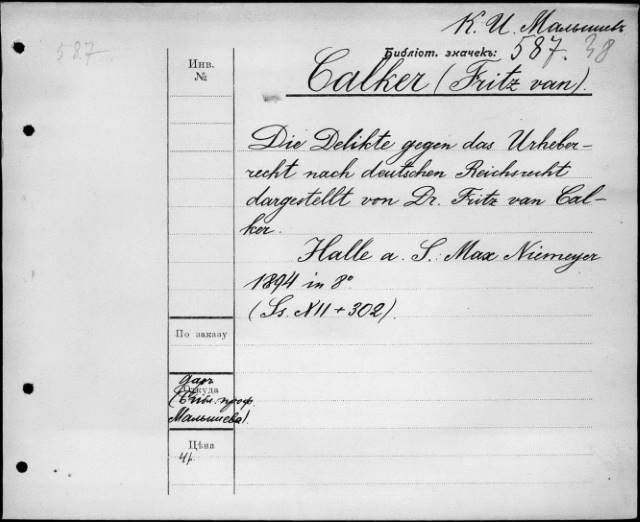 К. И. Малышевъ
587
Библіот. значекъ: 587. 38
Инв.
№
Calker (Fritz van).
Die Delikte gegen das Urheber-
recht nach deutschen Reichsrecht
dargestellt von Dr. Fritz van Cal-
ker.
Halle a. S.: Max Niemeyer
1894 in 8°
(Ss. XII + 302).
По заказу
Откуда
Даръ
(Библ. проф.
Малышева).
Цѣна